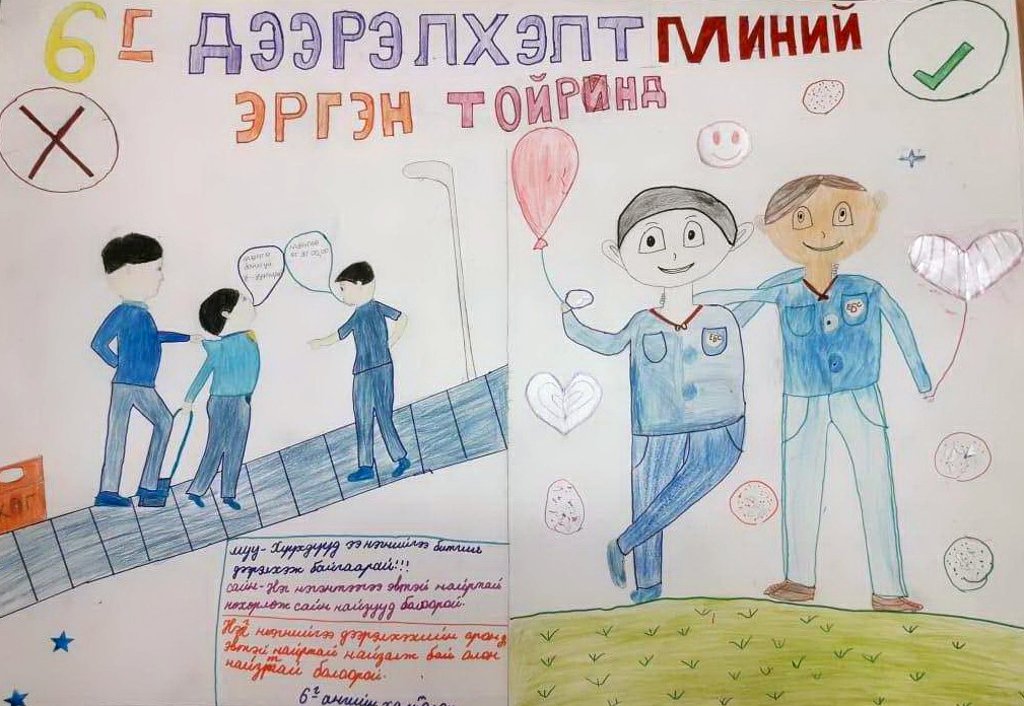 6Г ДЭЭРЭЛХЭЛТ МИНИЙ
ЭРГЭН ТОЙРИНД
ЕБС
ЕБС
ХОГ
муу - Хүүхдүүд ээ нэгнийгээ битгий
дэрэлхэж байгаарай!!!
сайн - Нэг нэгэнтэйгээ эвтэй найртай
нөхөрлөж сайн найзууд болоорой.
Нэг нэгнийгээ дээрэлхэхийн оронд
эвтэй найртай найзалж бай олон
найзтай болоорой.
6г ангийн